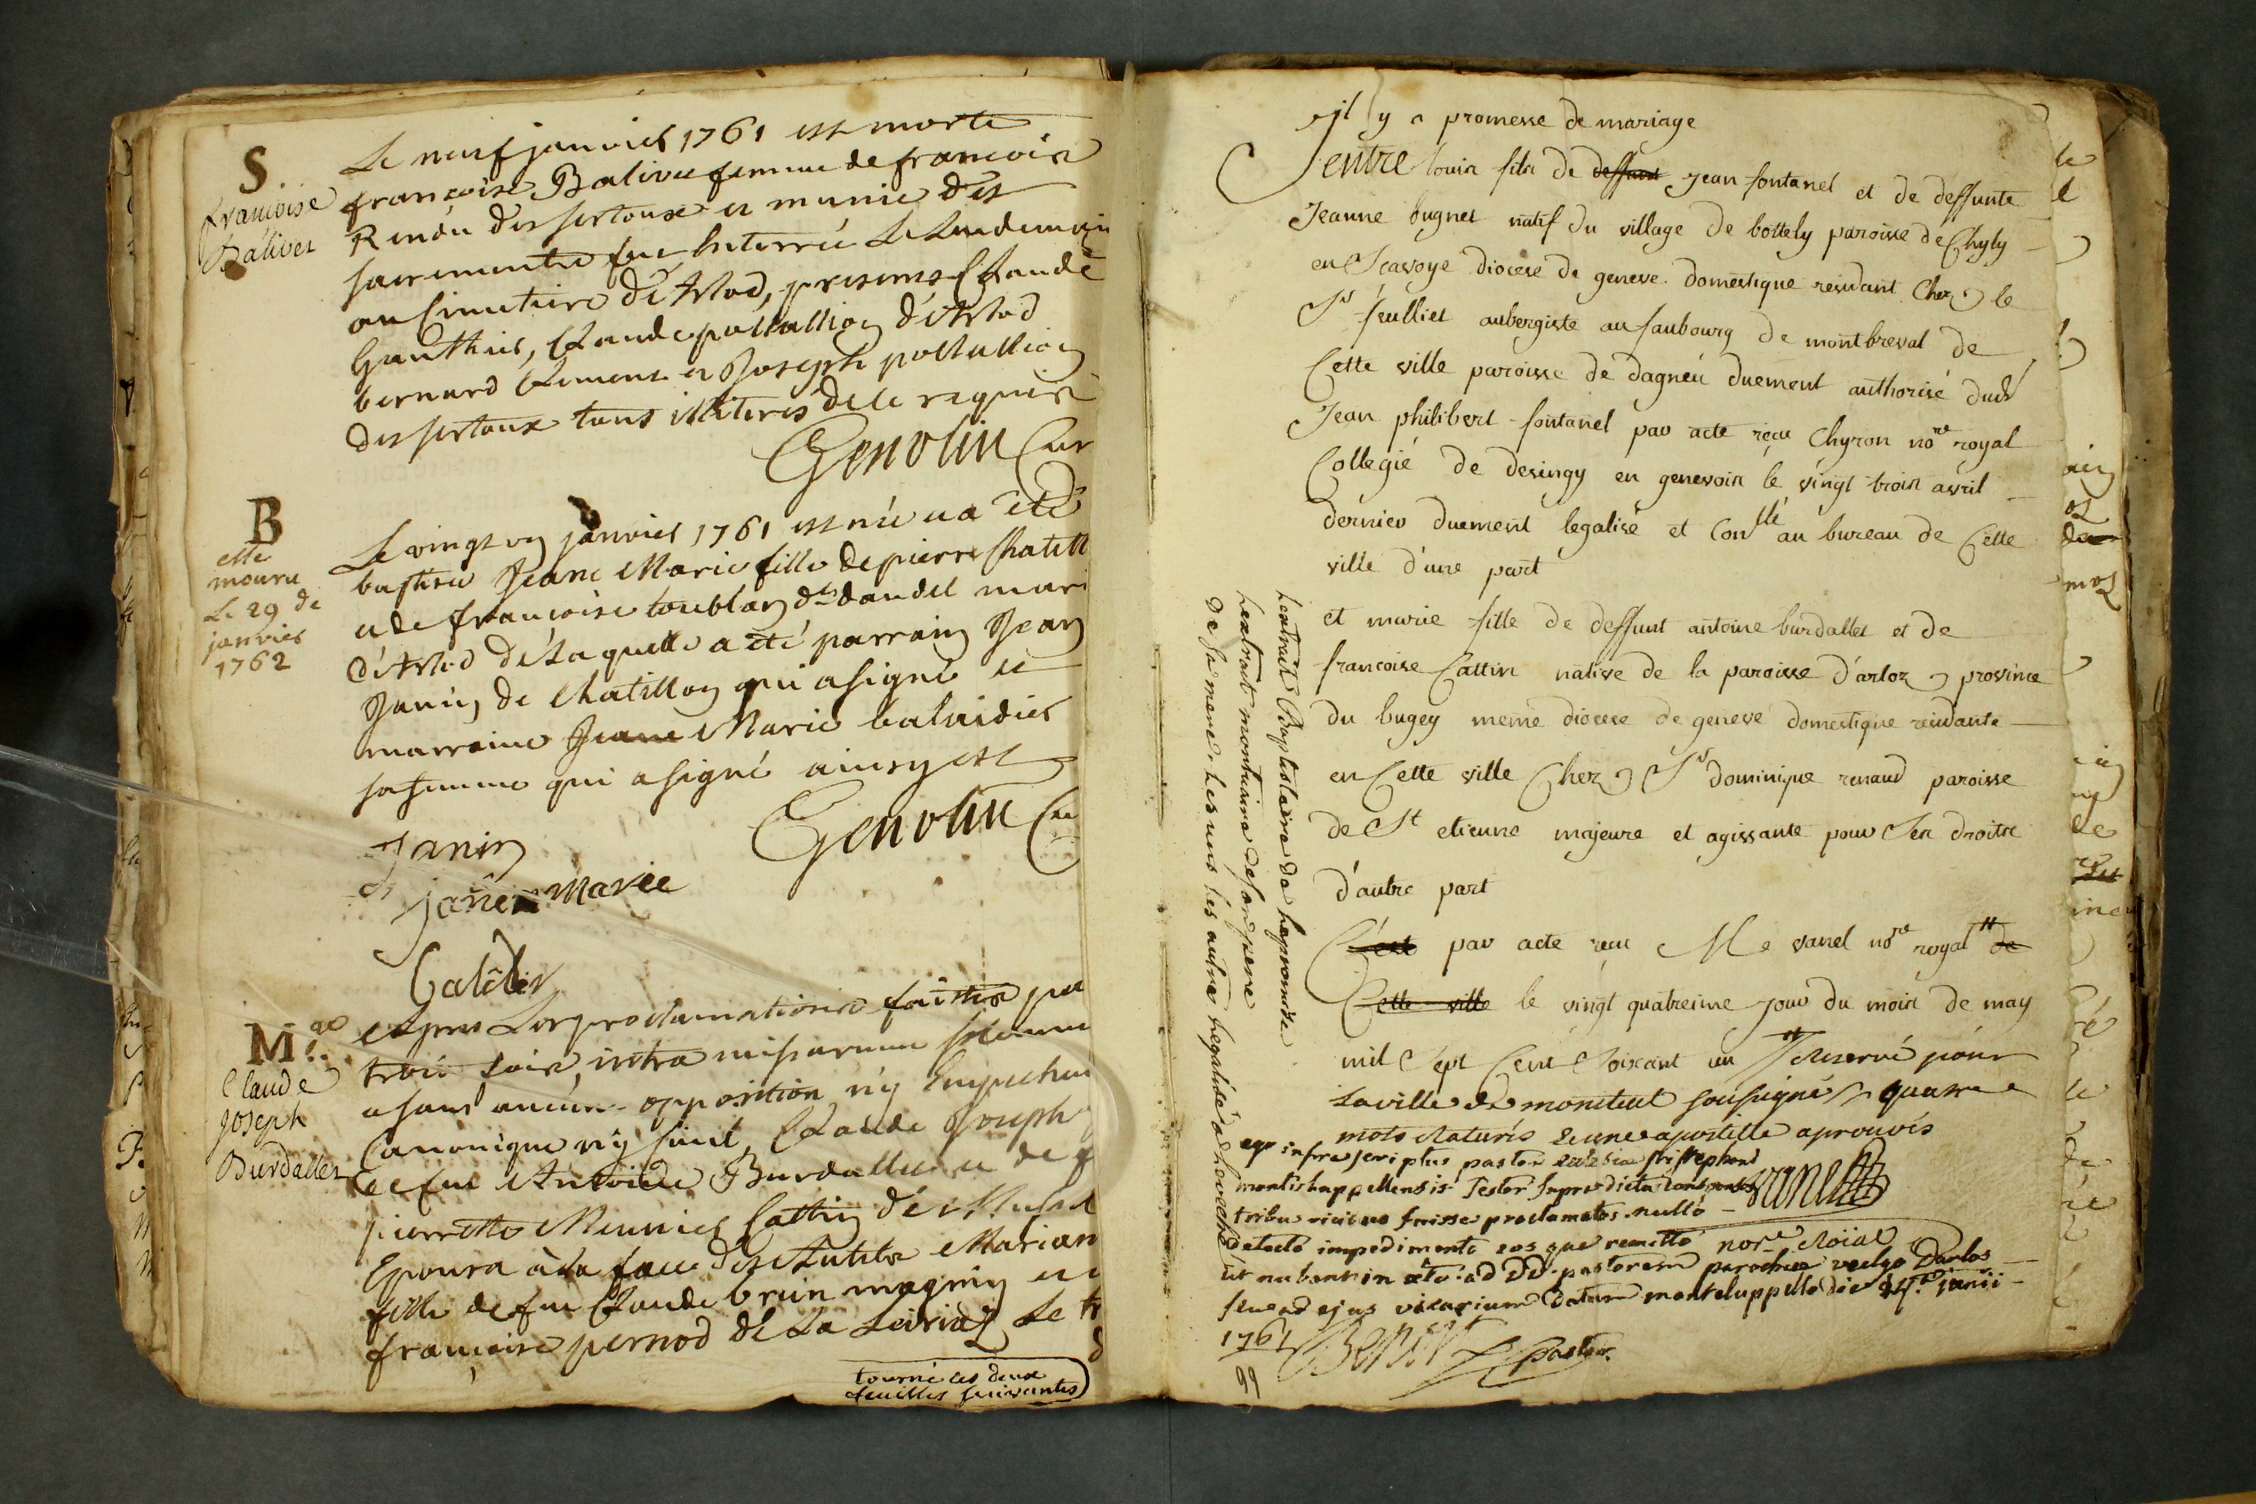 S.
françoise
Balivet
Le neuf janvier 1761 est morte
françoise Balivet femme de françois
Renòu des sertoux et munie des
sacrements fut enterrée Le Lendemain
au Cimetiere d'Arlod, presens Claude
Gauthier, Claude poltallion d'Arlod
bernard Clement et Joseph poltallion
des sertoux tous illiterés de ce requis
Genolin Cur
B
elle
mouru
Le 29 de
janvier
1762
Le vingt un janvier 1761 est née et a été
baptisée Jeane Marie fille de pierre Chatill
et de francoise toublan daudel mari
d'Arlod de Laquelle a été parrain Jean
Janin de Chatillon qui a signé et
marraine Jeane Marie balaidier
sa femme qui a signé ainsy est
Genolin Cu
Janin
janer marie
Galédier
M.ge
Claude
Joseph
Burdallet
Apres Les proclamations faittes par
trois fois, intra missarum solemn
et sans aucune opposition n'y Empechem
Canonique n'y Civil, Claude Joseph
de feu Antoine Burdallet et de
pierrette Meunier Cattin de Musel
Epousa à la face des Autels Marian
fille de feu Claude brun magnin et
françoise pernod de La Leiriaz Le tr
tourné les deux
feuilles suivantes
jl y a promesse de mariage
entre louis fils de deffunt Jean fontanel et de deffunte
Jeanne bugnet natif du village de bottely paroisse de Chyly
en Scavoye diocese de geneve domestique residant Chez le
Sr feulliet aubergiste au faubourg de montbreval de
Cette ville paroisse de dagneu duement authorisé dudt
Jean philibert fontanel par acte recu Chyron nore royal
Collegié de desingy en genevois le vingt trois avril
dernier duement legalisé et Conllé au bureau de Cette
ville d'une part
et marie fille de deffunt antoine burdallet et de
francoise Cattin native de la paroisse d'arloz province
du bugey meme diocese de geneve domestique residante
en Cette ville Chez Sr dominique renaud paroisse
de St etienne majeure et agissante pour Ses droits
d'autre part
C'est par acte recu Me vanel nore royal de
Cette ville le vingt quatreime Jour du mois de may
mil Sept Cent Soixant un reservé pour
la ville de montluel sousigné quatre
mots raturés et une apostille aprouvés
vanel
nore Roial
ego infra scriptus pastor ecclesiae sti stephani
montishappellensis testor supradicta
tribus vicibus fuisse proclamatos nullo
detecto impedimento eos que remitto
ut nubant in ad DD. pastorem parochiae vulgo Darlos
seu ad ejus vicarium Datum monteluppello die junii
1761 Benoit pastor.
Lextrait Baptistaire de la promise
Lextrait mortuaire de son pere
et de sa mere les uns les autres legalisé a levêché